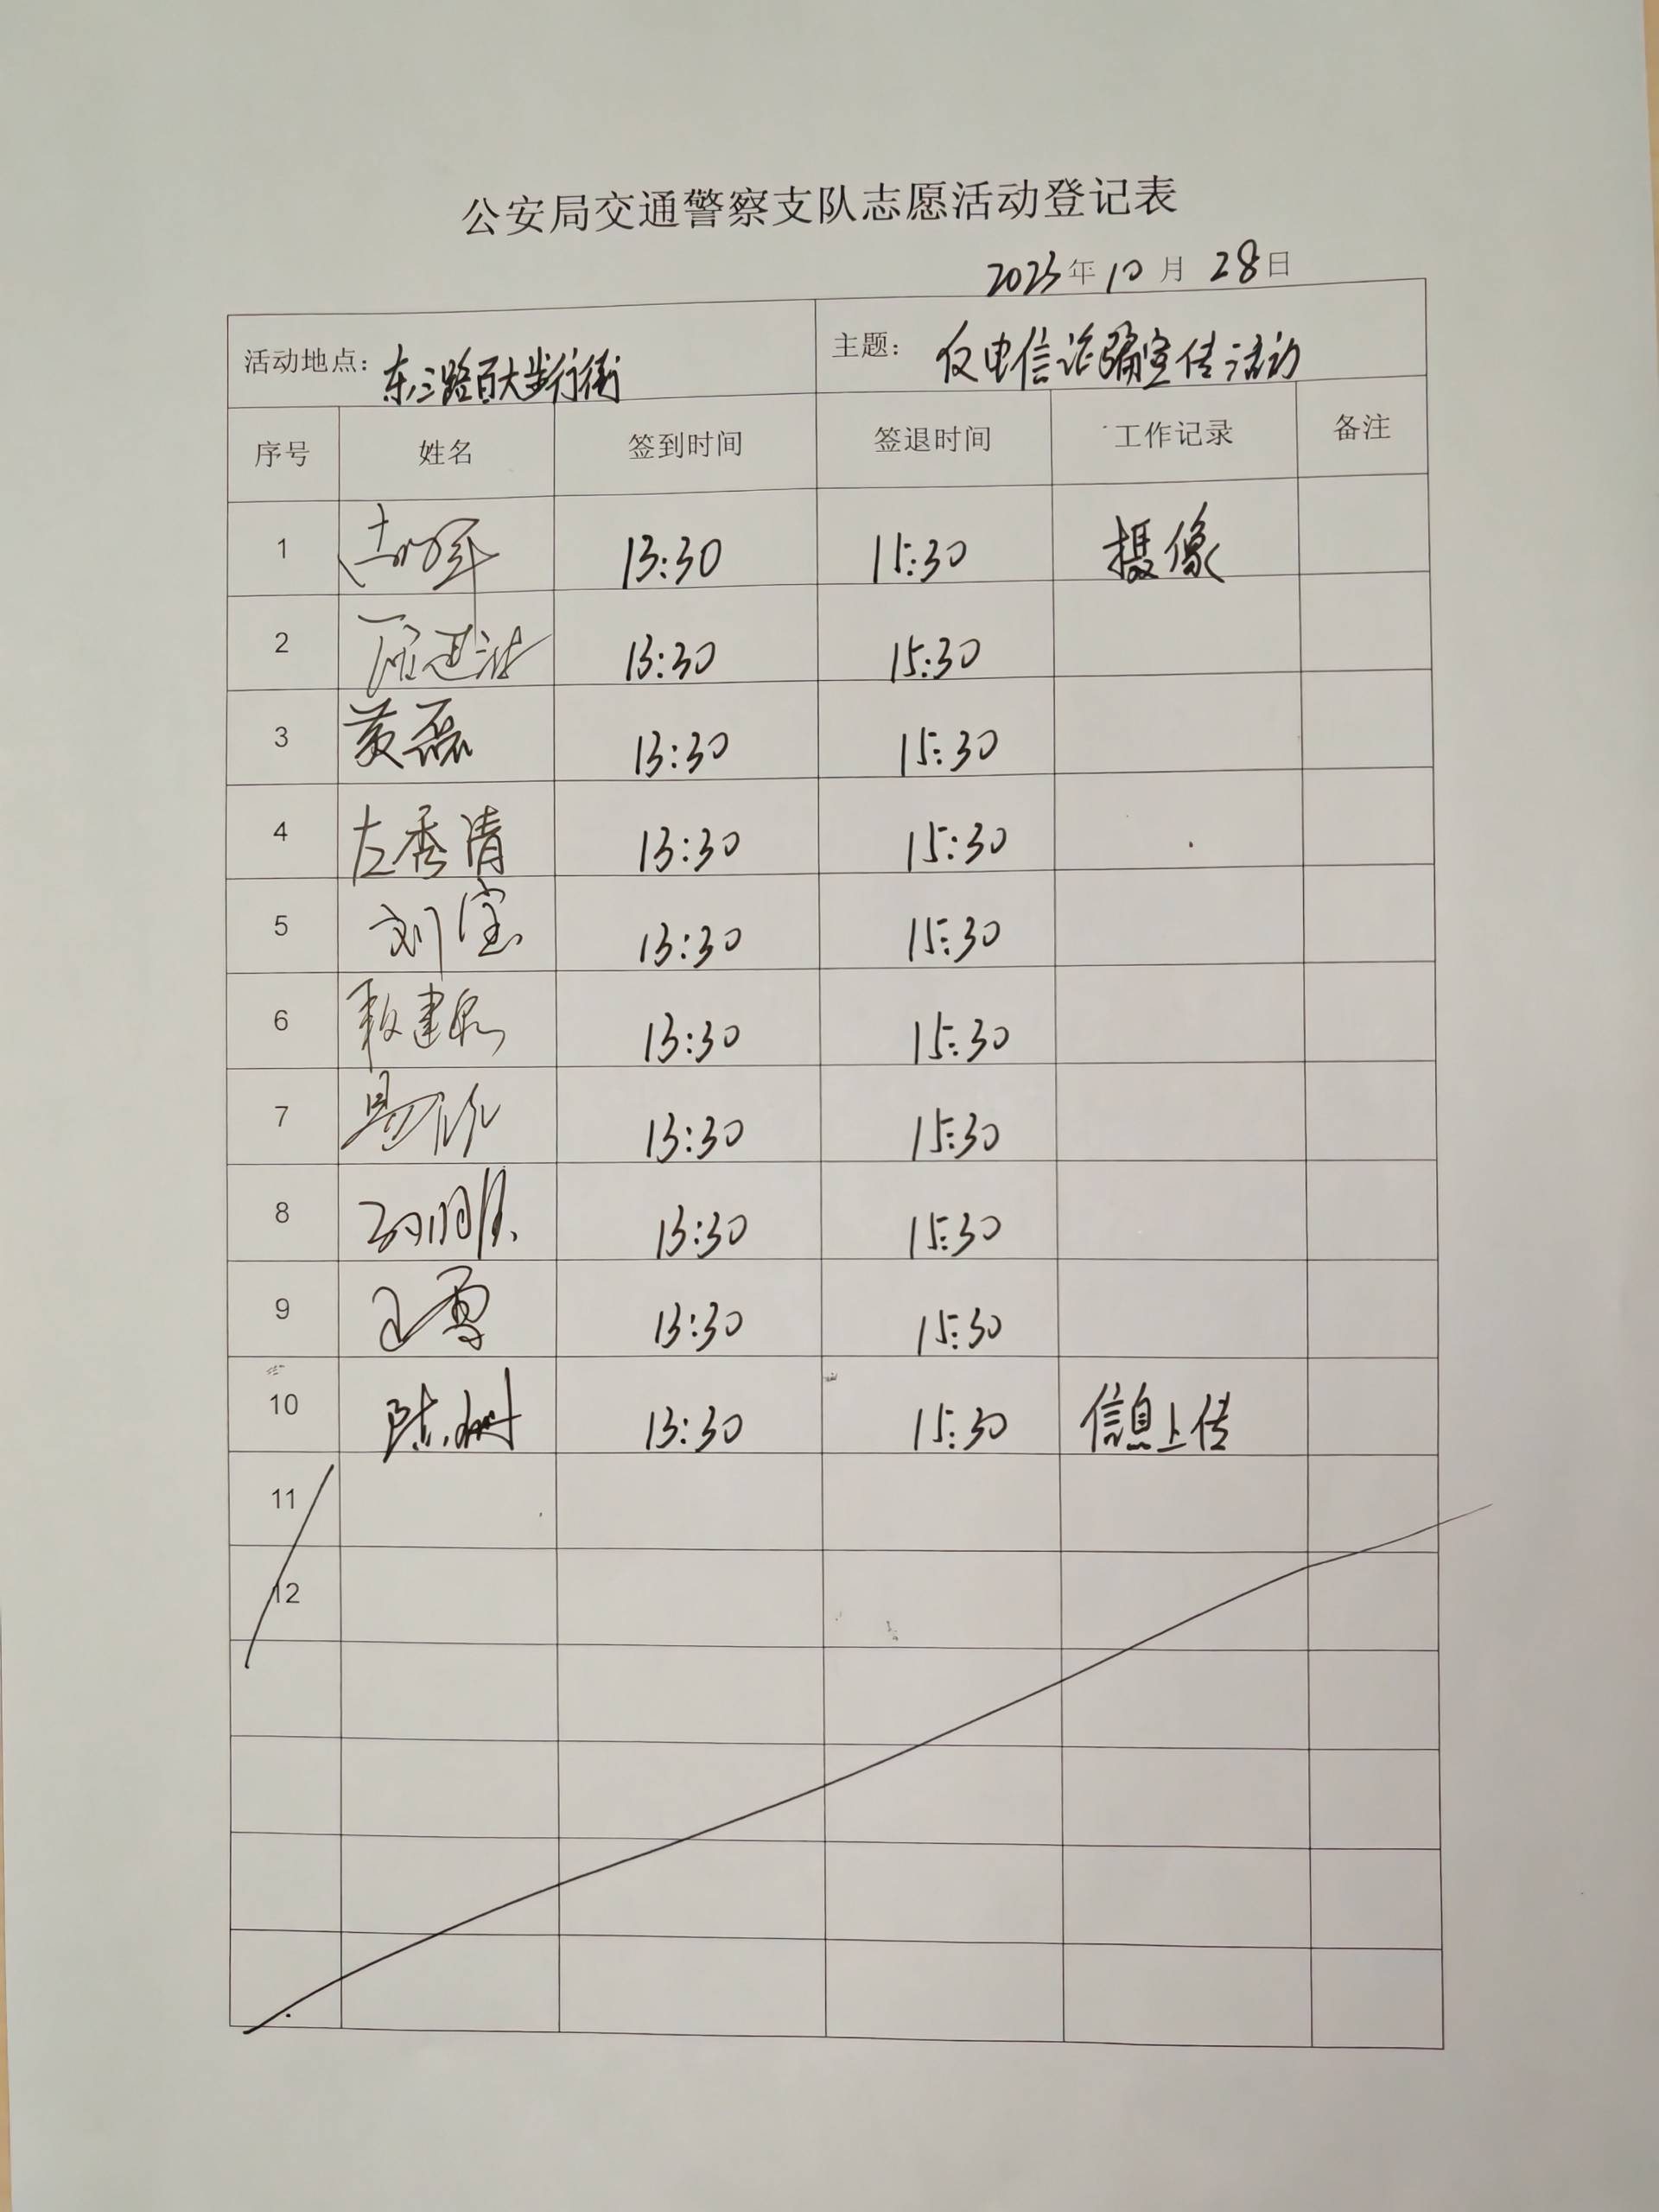 公安局交通警察支队志愿活动登记表
2023年10月28日
活动地点：东二路百大步行街 主题：反电信诈骗宣传活动
序号 姓名 签到时间 签退时间 工作记录 备注
1 13:30 15:30 摄像
2 13:30 15:30
3 黄磊 13:30 15:30
4 左秀清 13:30 15:30
5 刘宝 13:30 15:30
6 13:30 15:30
7 13:30 15:30
8 13:30 15:30
9 13:30 15:30
10 陈树 13:30 15:30 信息上传
11
12